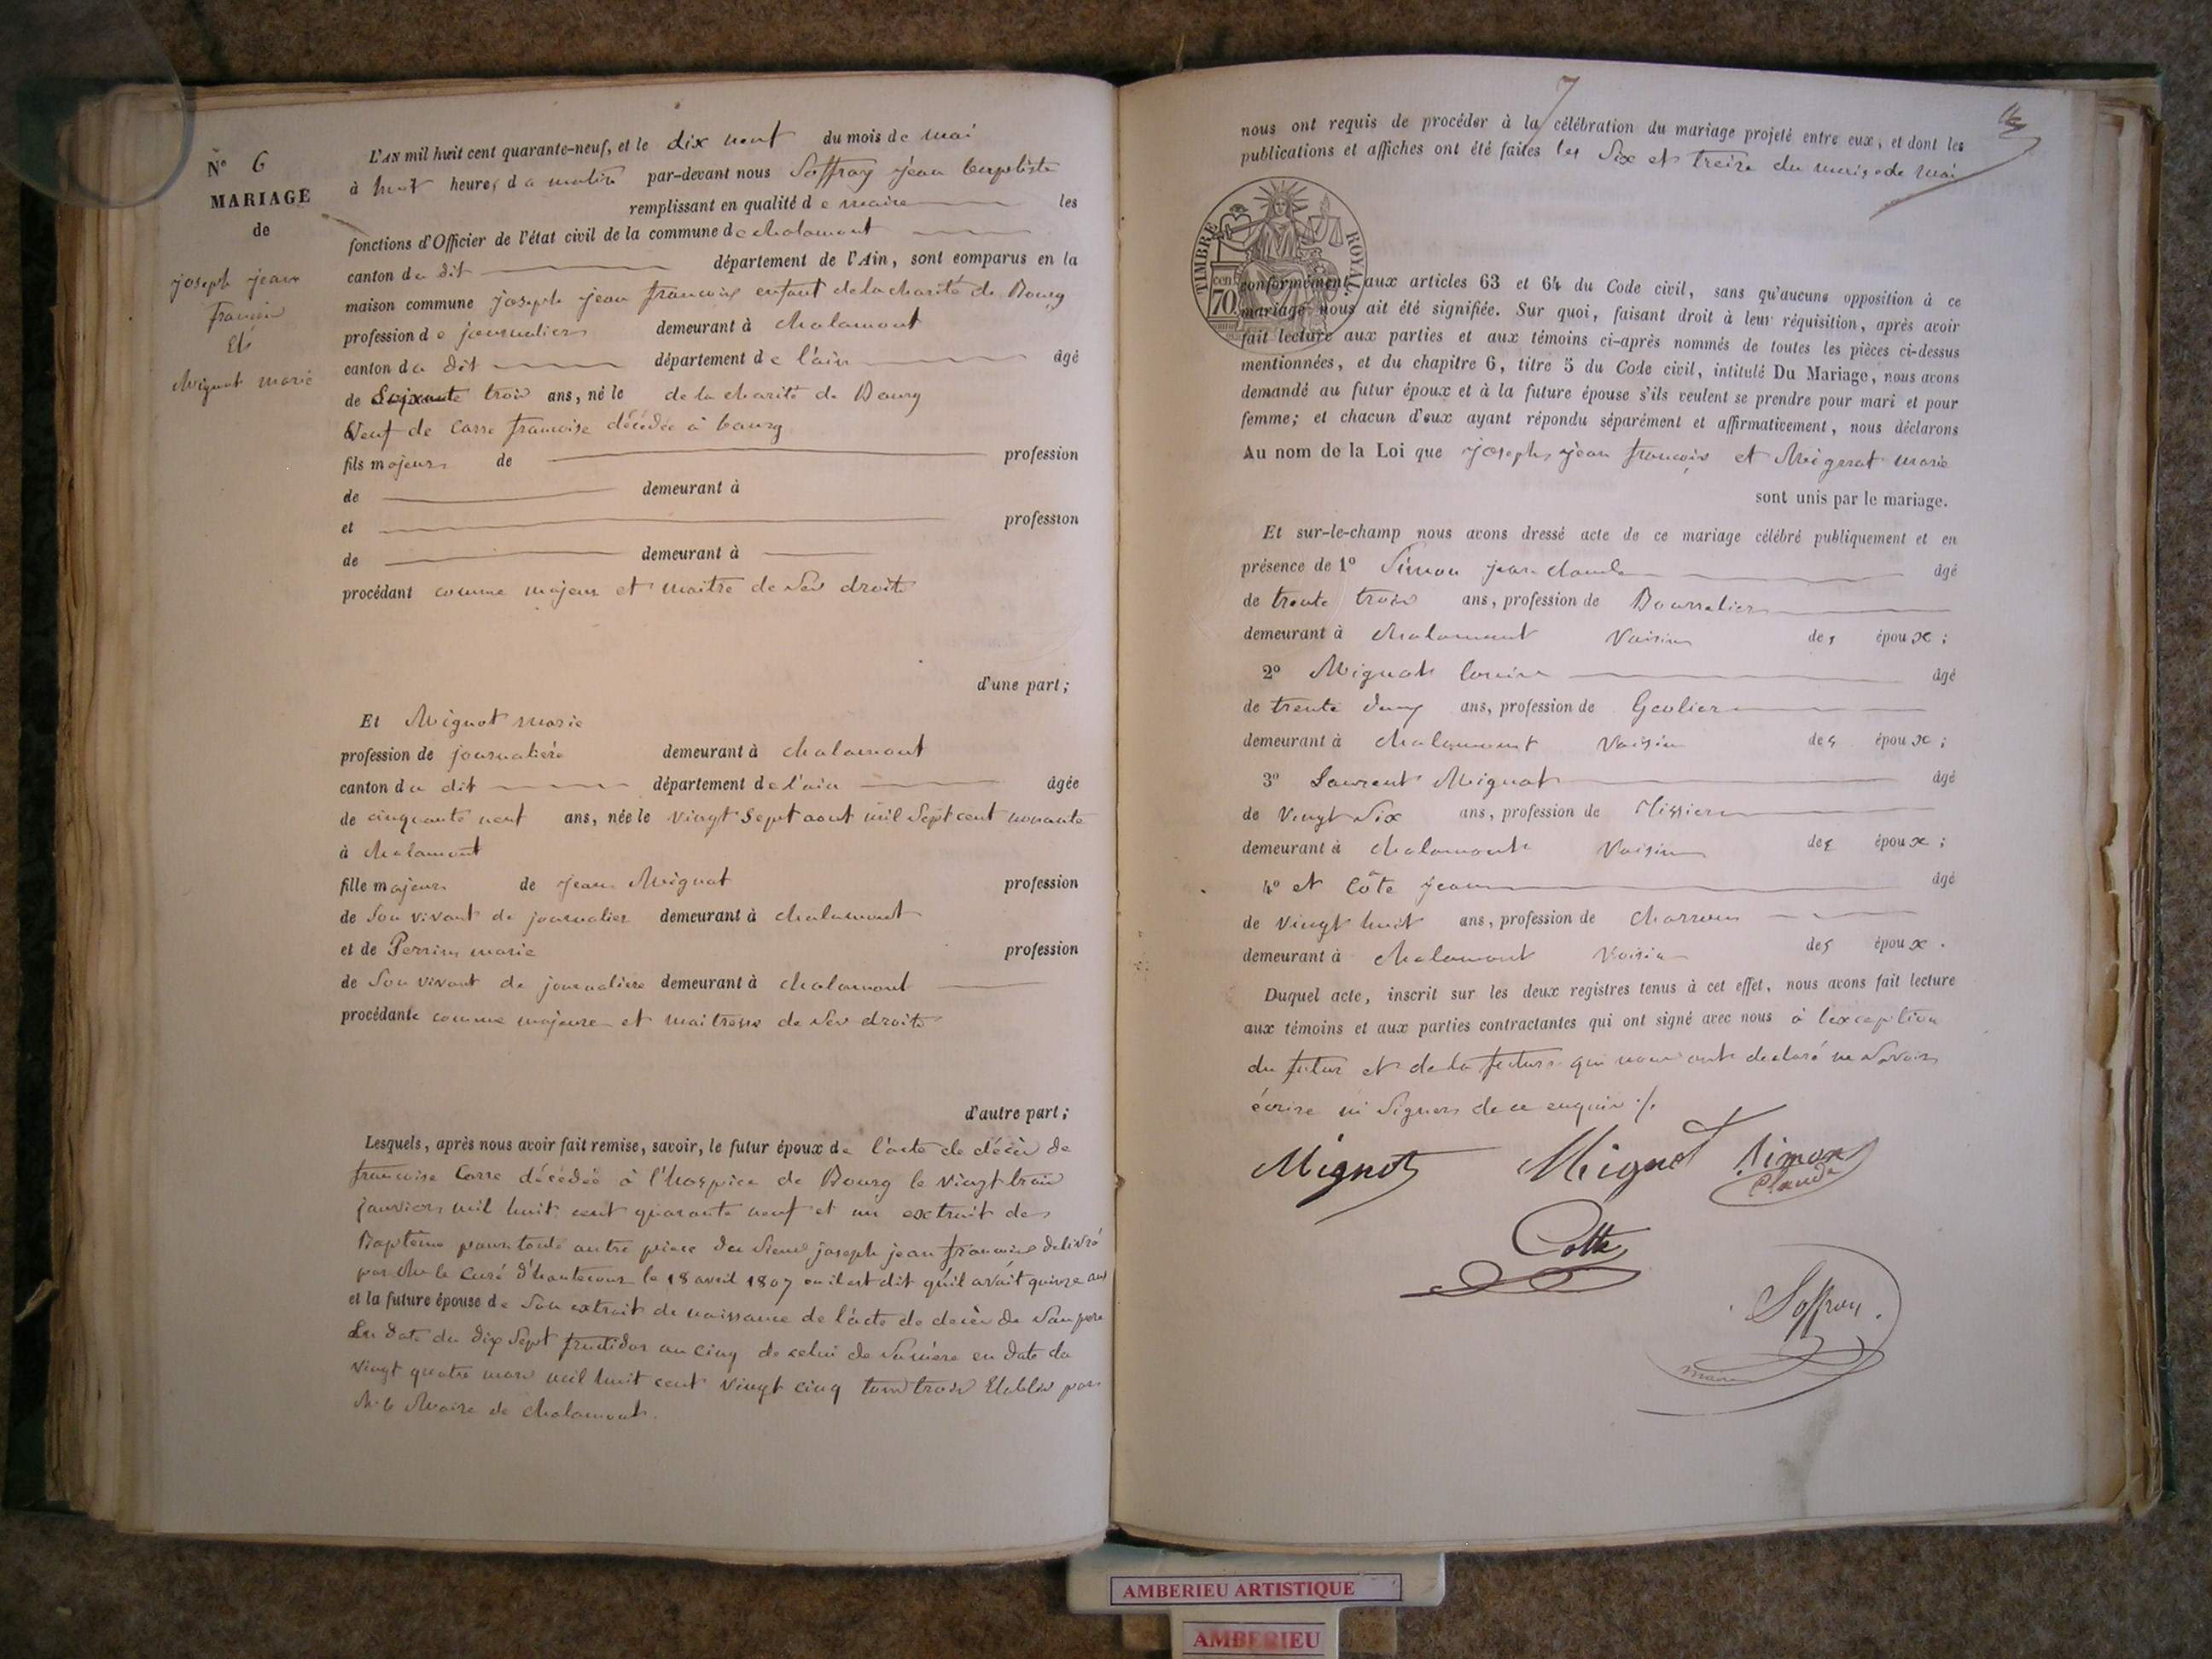 N° 6
MARIAGE
de
joseph jean
françois
Et
Mignot marie
L'AN mil huit cent quarante-neuf, et le dix neuf du mois de mai
à huit heures du matin par-devant nous Soffray jean baptiste
remplissant en qualité de maire les
fonctions d'Officier de l'état civil de la commune de chalamont
canton du dit département de l'Ain, sont comparus en la
maison commune joseph jean françois enfant de la charité de Bourg
profession de journalier demeurant à chalamont
canton du dit département de l'ain âgé
de Soixante trois ans, né le de la charité de Bourg
Veuf de Carre françoise décédée à bourg
fils majeur de profession
de demeurant à
et profession
de demeurant à
procédant comme majeur et maitre de ses droits
d'une part;
Et Mignot marie
profession de journalière demeurant à chalamont
canton du dit département de l'ain âgée
de cinquante neuf ans, née le vingt Sept aout mil Sept cent nonante
à chalamont
fille majeure de jean Mignot profession
de Son vivant de journalier demeurant à chalamont
et de Perrin marie profession
de Son vivant de journalière demeurant à chalamont
procédante comme majeure et maitresse de ses droits
d'autre part;
Lesquels, après nous avoir fait remise, savoir, le futur époux de l'acte de décès de
françoise Carre décédée à l'hospice de Bourg le vingt trois
janvier mil huit cent quarante neuf et un extrait de
Baptême pour toute autre pièce du Sieur joseph jean françois délivré
par Mr le Curé d'hautecour le 18 avril 1807 ou il est dit qu'il avait quinze ans
et la future épouse de Son extrait de naissance de l'acte de décès de Son père
En date du dix Sept fructidor an cinq de celui de Sa mère en date du
vingt quatre mars mil huit cent vingt cinq tous trois Etablis par
Mr le Maire de chalamont.
7
nous ont requis de procéder à la célébration du mariage projeté entre eux, et dont les
publications et affiches ont été faites les Six et treize du mois de mai
TIMBRE ROYAL
cen 70.
conformément aux articles 63 et 64 du Code civil, sans qu'aucune opposition à ce
mariage nous ait été signifiée. Sur quoi, faisant droit à leur réquisition, après avoir
fait lecture aux parties et aux témoins ci-après nommés de toutes les pièces ci-dessus
mentionnées, et du chapitre 6, titre 5 du Code civil, intitulé Du Mariage, nous avons
demandé au futur époux et à la future épouse s'ils veulent se prendre pour mari et pour
femme; et chacun d'eux ayant répondu séparément et affirmativement, nous déclarons
Au nom de la Loi que joseph jean françois et Mignot marie
sont unis par le mariage.
Et sur-le-champ nous avons dressé acte de ce mariage célébré publiquement et en
présence de 1° Simon jean claude âgé
de trente trois ans, profession de Bourrelier
demeurant à chalamont Voisin des époux;
2° Mignot louis âgé
de trente deux ans, profession de Geolier
demeurant à chalamont Voisin des époux;
3° Laurent Mignot âgé
de Vingt Six ans, profession de Tissier
demeurant à chalamont Voisin des époux;
4° et Côte jean âgé
de vingt huit ans, profession de charron
demeurant à chalamont Voisin des époux.
Duquel acte, inscrit sur les deux registres tenus à cet effet, nous avons fait lecture
aux témoins et aux parties contractantes qui ont signé avec nous à lexception
du futur et de la future qui nous ont declaré ne Savoir
écrire ni Signer de ce enquis ./.
Mignot Mignot Simon
Claude
Cotte
Soffray.
maire
AMBERIEU ARTISTIQUE
AMBERIEU